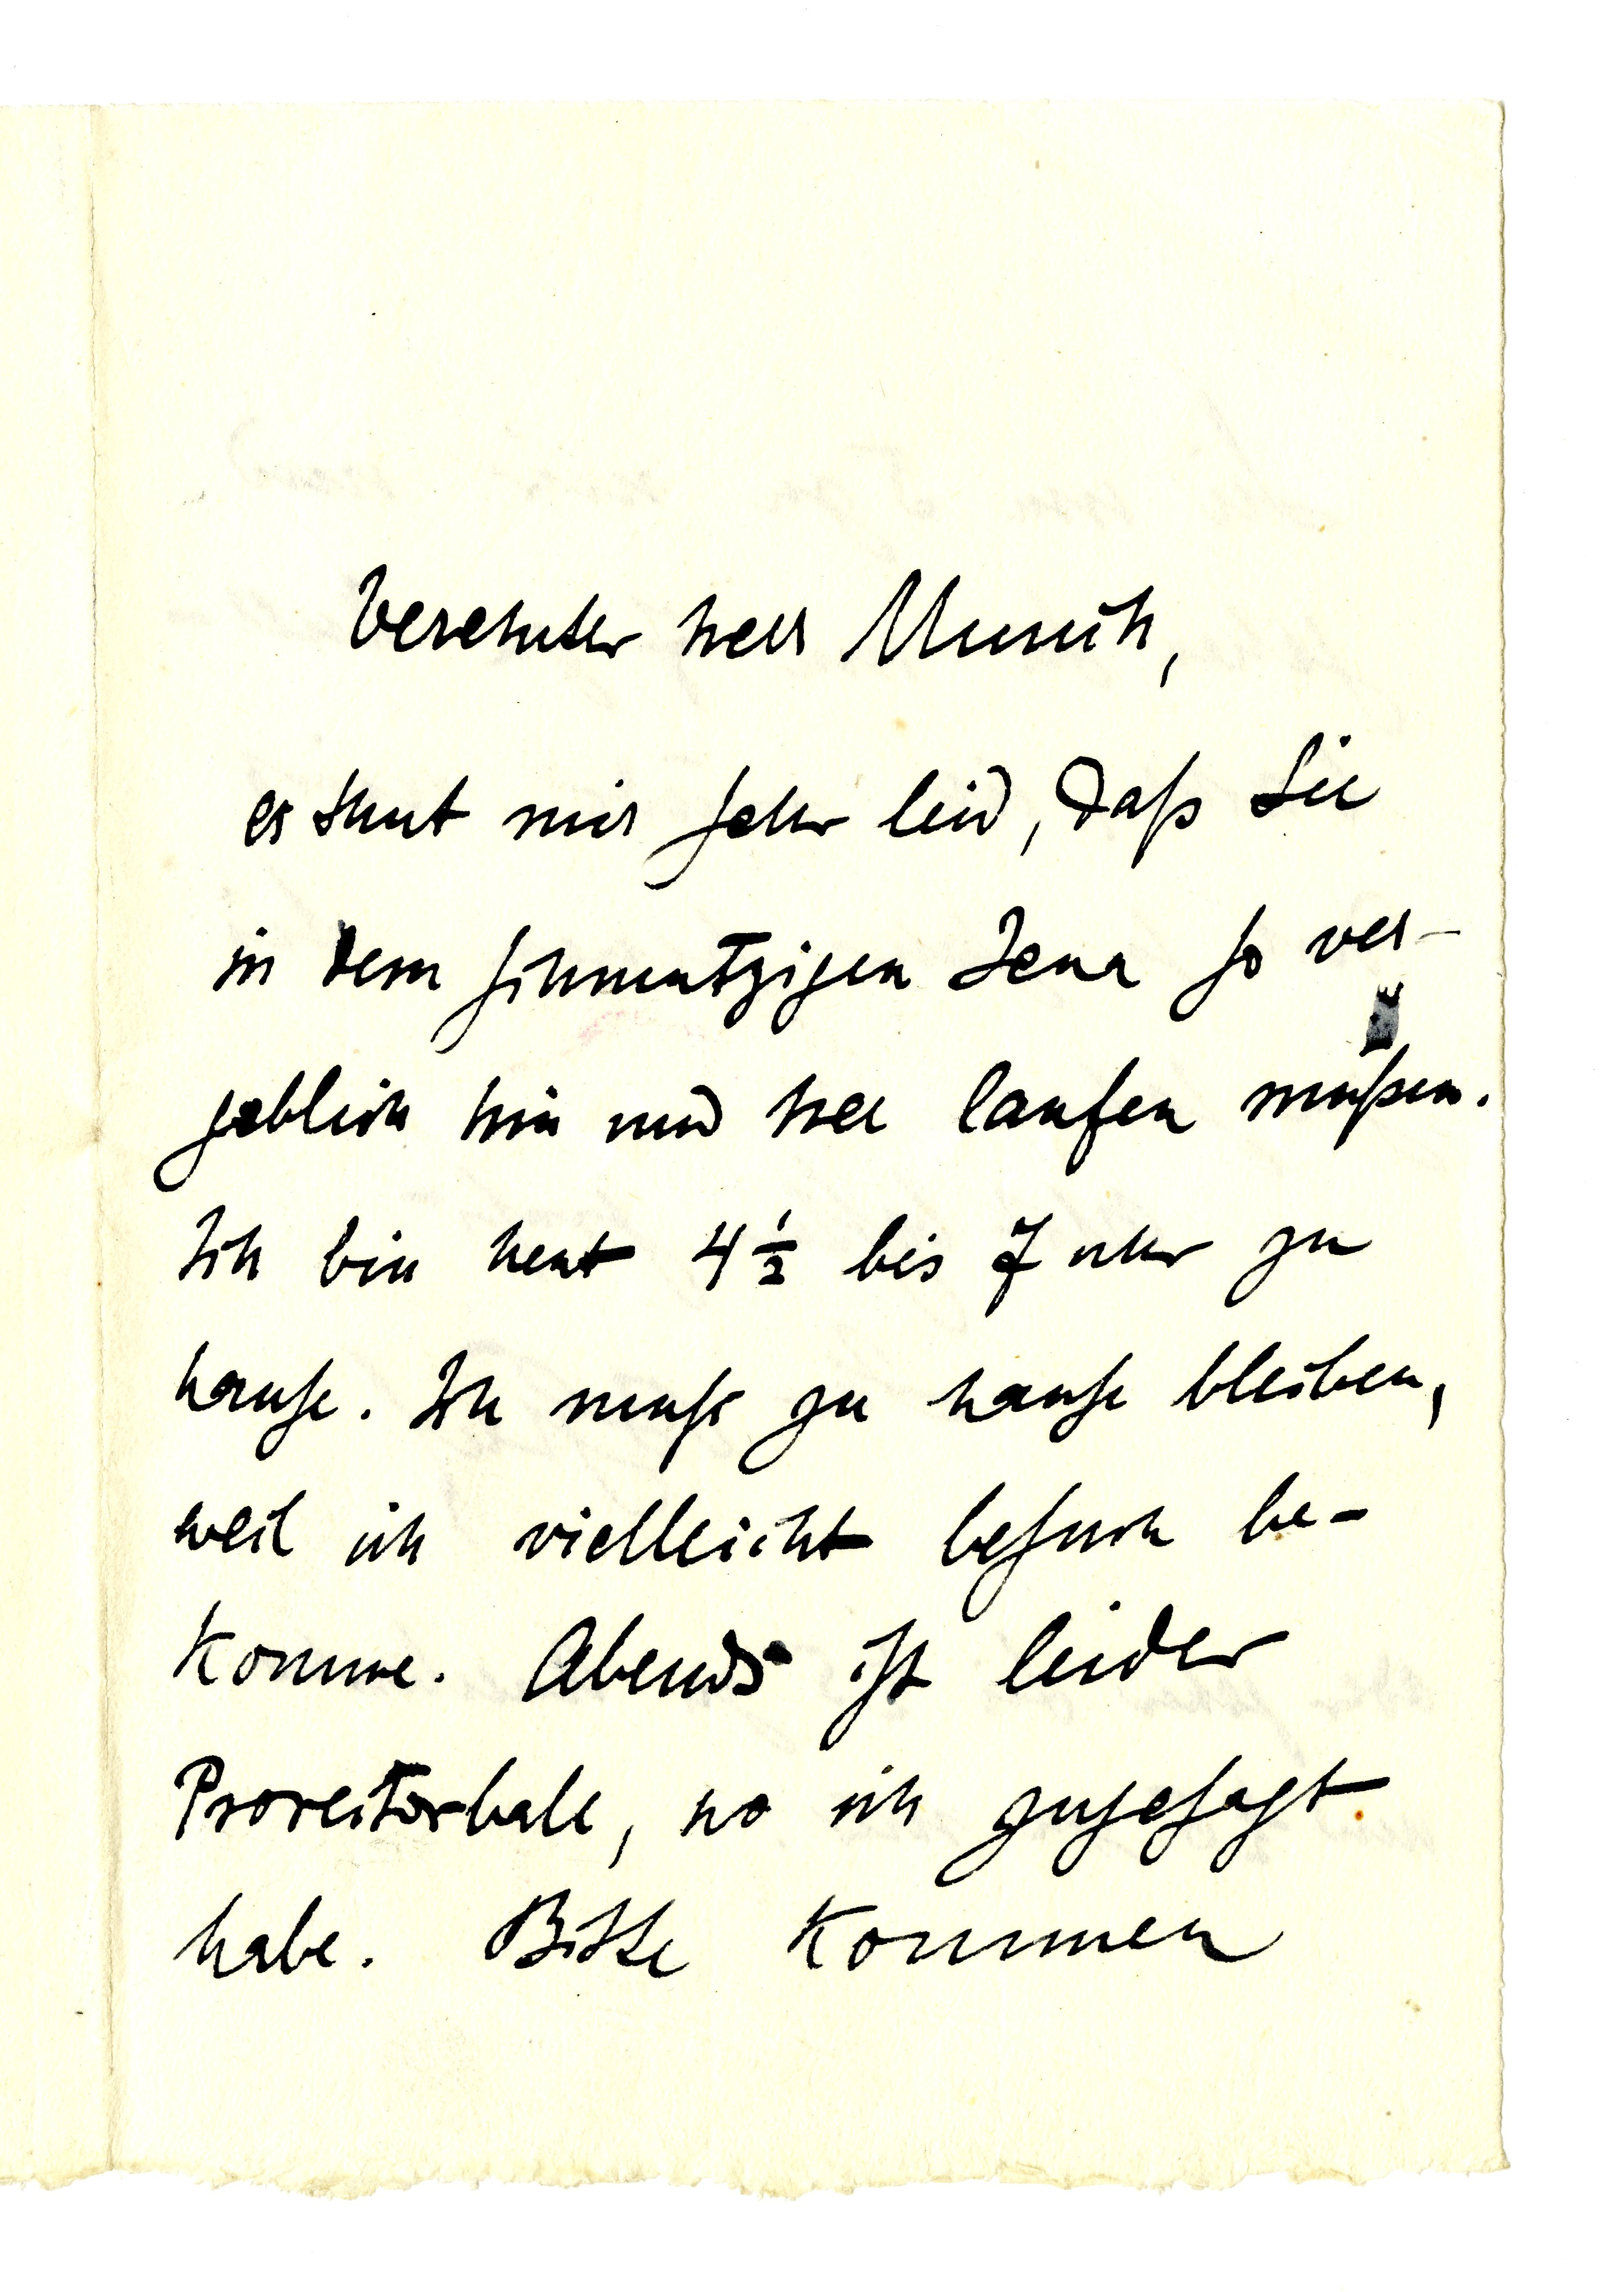 Verehrter herr Munch,
es thut mir sehr leid, daß Sie
in dem schmutzigen Jena so ver-
geblich hin und her laufen mußen.
Ich bin heut 4 1/2 bis 7 uhr zu
hause. Ich muß zu hause bleiben,
weil ich vielleicht besuch be-
komme. Abends ist leider
Prorectorball, wo ich zugesagt
habe. Bitte kommen